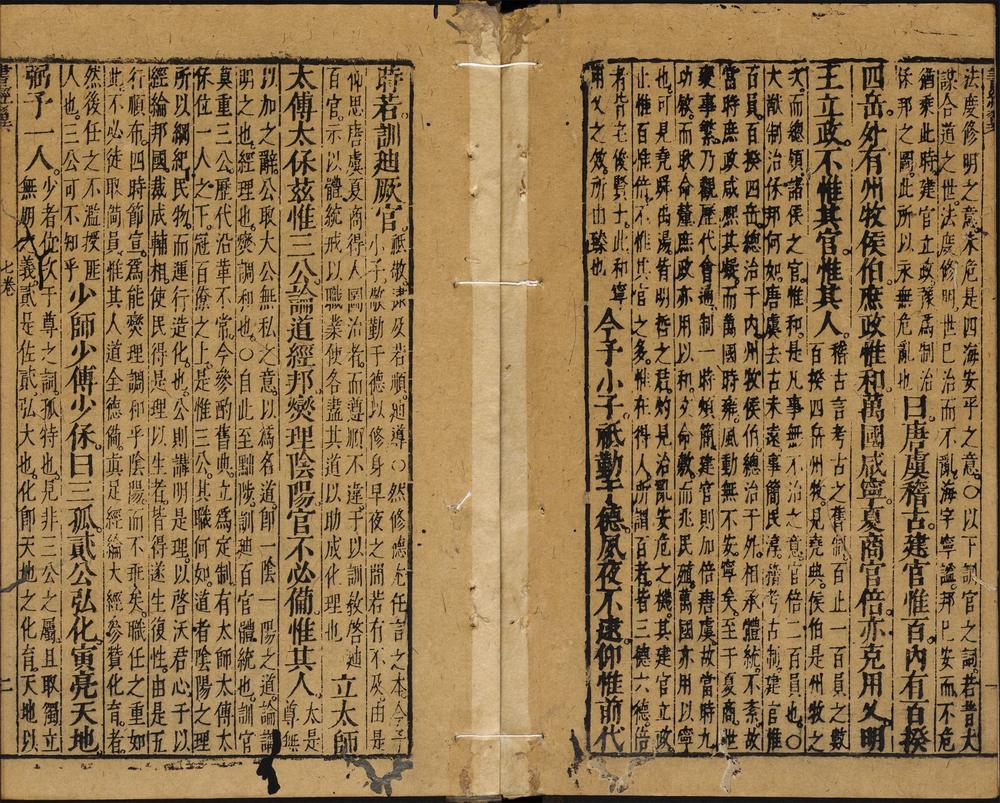 法度修明之意未危是四海安乎之意○以下訓官之詞若昔大
謀合道之世法度修明世已治而不亂海宇寧謐邦已安而不危
猶兼此時建官立政深為制治
保邦之圖此所以永無危亂也
曰唐虞稽古建官惟百內有百揆
四岳外有州牧侯伯庶政惟和萬國咸寧夏商官倍亦克用乂明
王立政不惟其官惟其人
稽古言考古之舊制百止一百員之數
百揆四岳州牧見堯典侯伯是州牧之
次而總領諸侯之官惟和是凡事無不治之意官倍二百員也○
大猷制治保邦何如唐虞去古未遠事簡民淳稽考古制建官惟
百員百揆四岳總治于內州牧侯伯總治于外相承體統不紊故
當時庶政咸熙其凝而萬國時雍風動無不安寧矣至于夏商世
變事繁乃觀歷代會通制一時煩簡建官則加倍唐虞故當時九
功敘而歌命釐庶政亦用以和夕命敷而兆民殖萬國亦用以寧
也可見堯舜禹湯皆明哲之君灼見治亂安危之機其建官立政
止惟百惟倍不惟其官之多惟在得人所謂百者皆三德六德倍
者皆宅俊賢士此和寧
用乂之效所由臻也
今予小子祗勤于德夙夜不逮仰惟前代
時若訓迪厥官
祗敬逮及若順迪導○然修德允任言之本今予
小子敬勤于德以修身早夜之間若有不及由是
仰思唐虞夏商得人圖治者而尊順不違于以訓敎啓迪
百官示以體統戒以職業使各盡其道以助成化理也
立太師
太傅太保茲惟三公論道經邦燮理陰陽官不必備惟其人
太是
尊無
以加之辭公取大公無私之意以為名道即一陰一陽之道論講
明之也經理也燮調和也○自此至黜陟訓迪百官體統也訓官
莫重三公歷代沿革不常今參酌舊典立為定制有太師太傅太
保位一人之下冠百僚之上是惟三公其職何如道者陰陽之理
所以綱紀民物而運行造化也公則講明是理以啓沃君心于以
經綸邦國裁成輔相使民得是理以生者皆得遂生復性由是五
行順布四時簡宣為能燮理調和乎陰陽而不乖矣職任之重如
此不必徒取簡員惟其人道全德備真足經綸大經參贊化育者
然後任之不濫授匪
人也三公可不知乎
少師少傅少保曰三孤貳公弘化寅亮天地
弼予一人
少者位次于尊之詞孤特也見非三公之屬且取獨立
無朋之義貳是佐貳弘大也化即天地之化育天地以
七卷
二